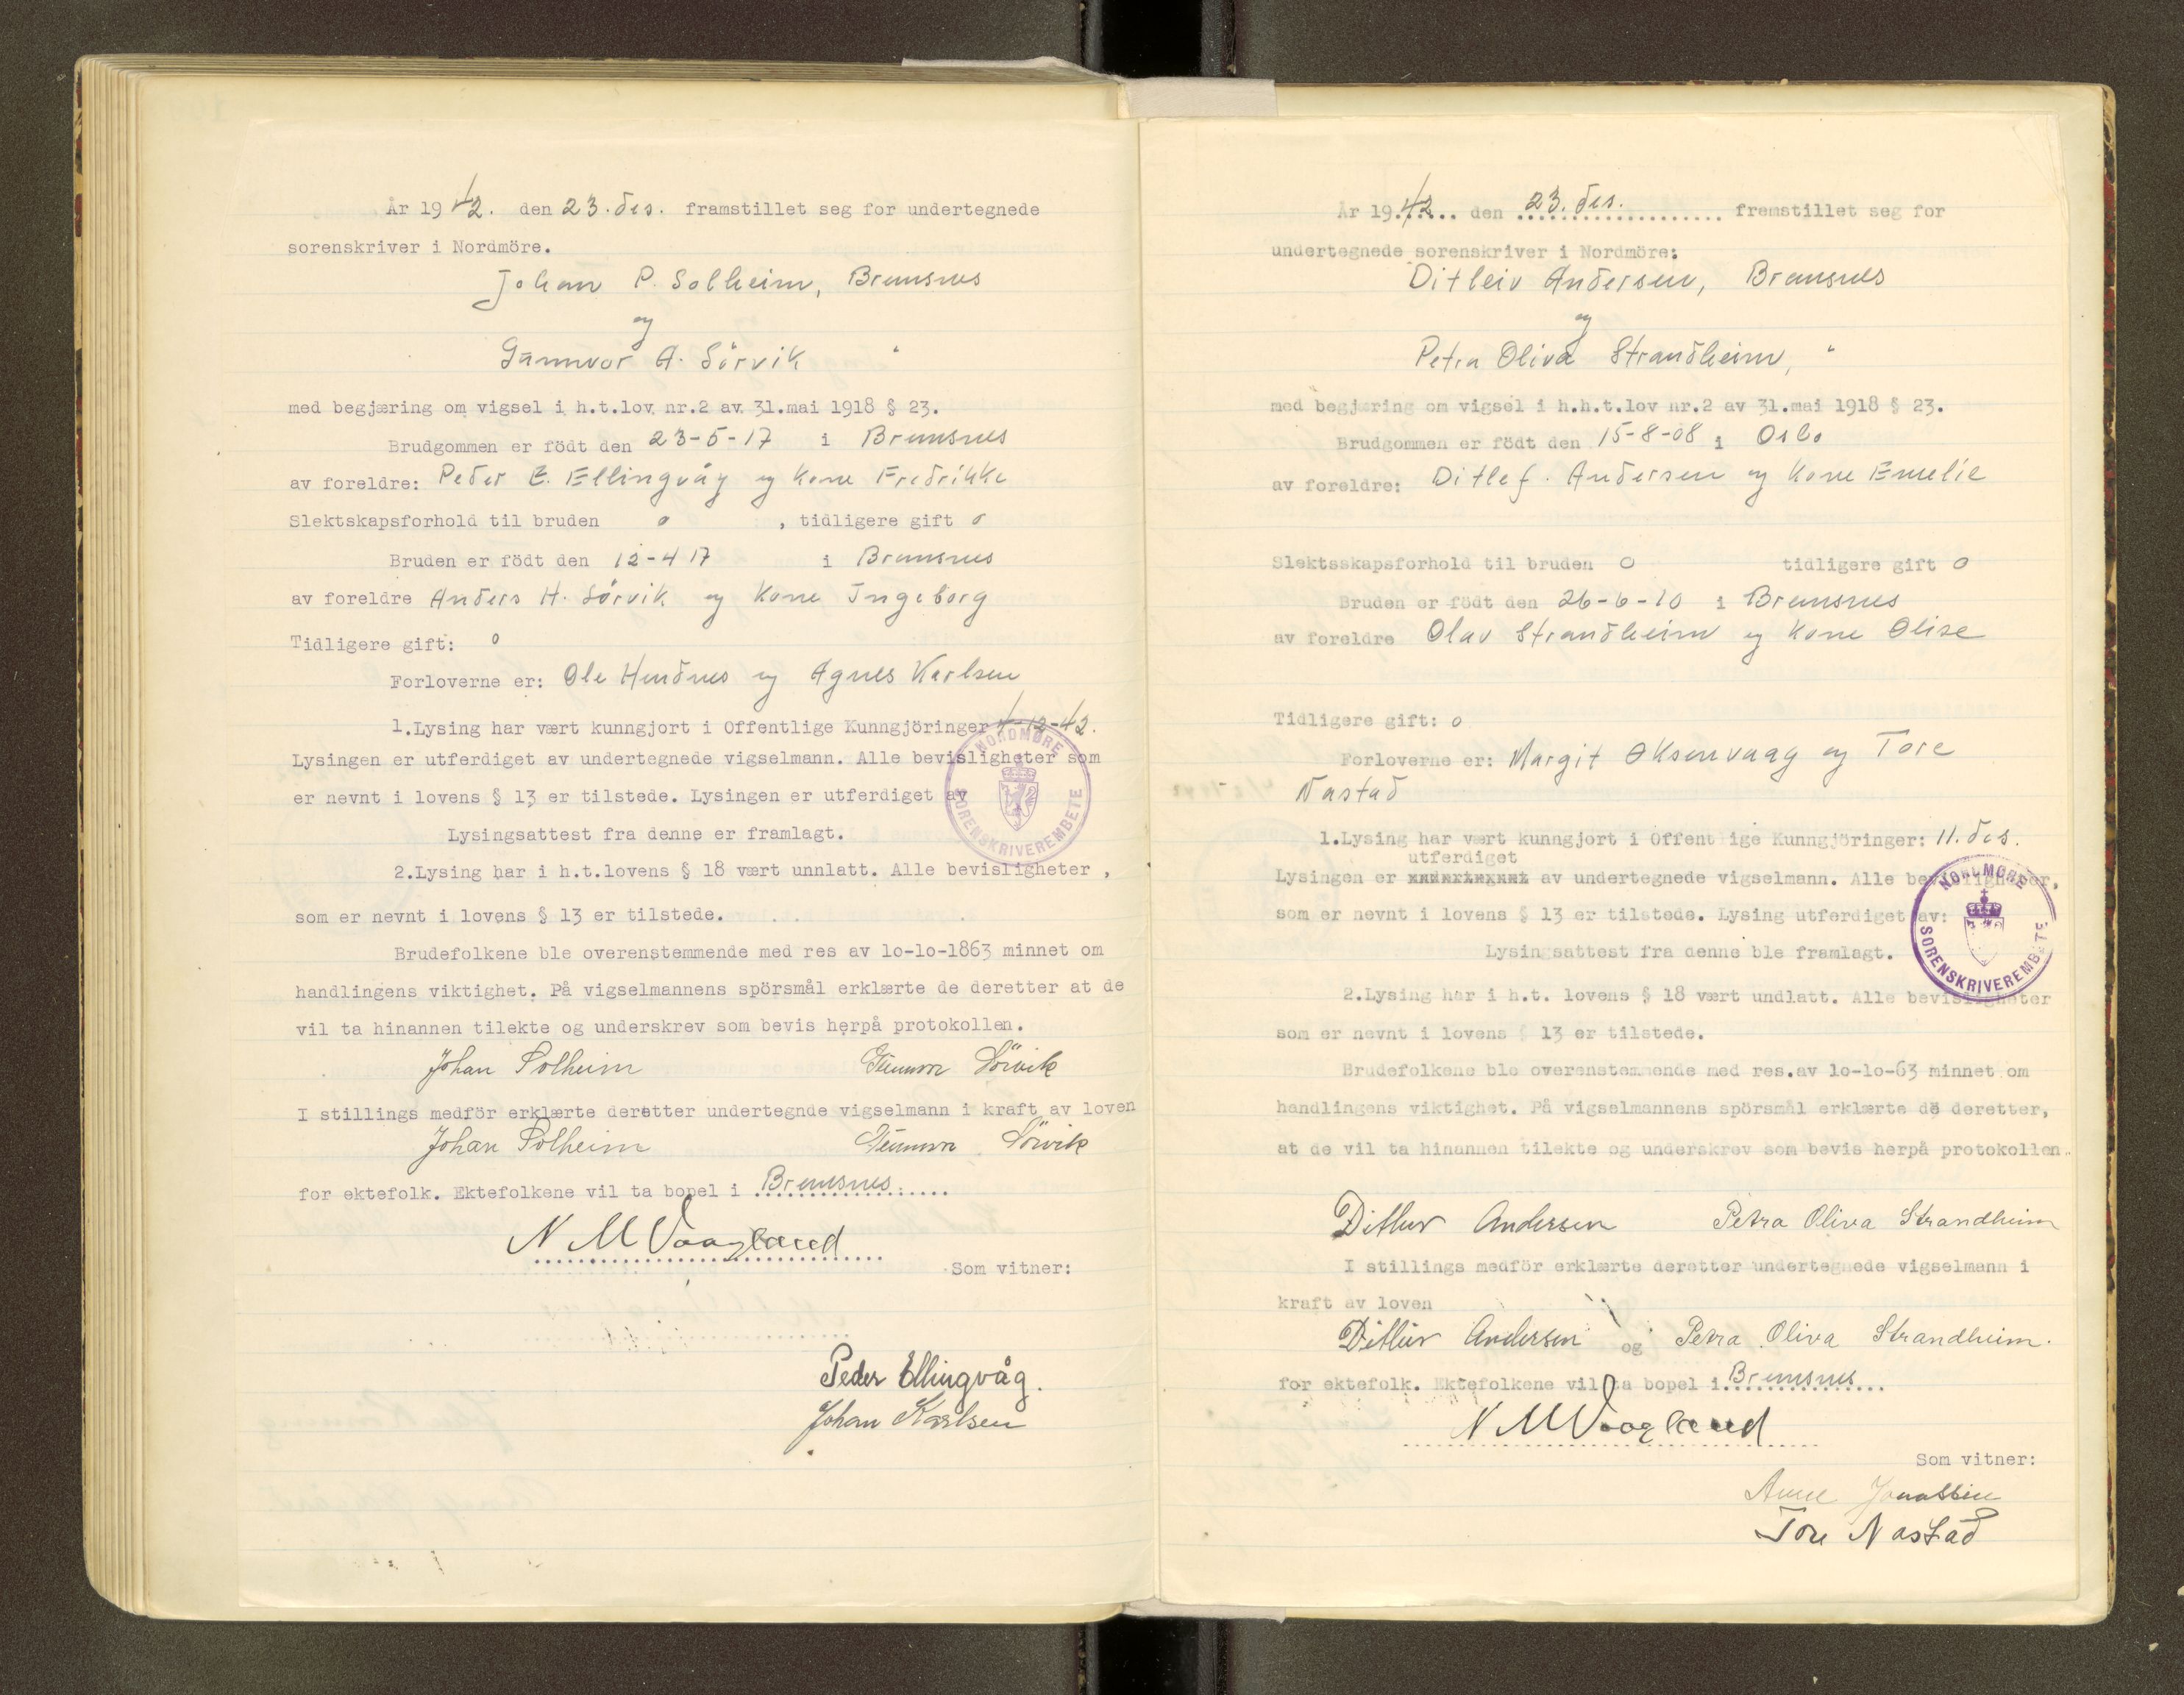 År 1942. den 23. des. framstillet seg for undertegnede
sorenskriver i Nordmöre.
Johan P. Solheim, Bremsnes
og
Gunnvor A. Sörvik "
med begjæring om vigsel i h.t.lov nr.2 av 31.mai 1918 § 23.
Brudgommen er födt den 23-5-17 i Bremsnes
av foreldre: Peder E. Ellingvåg og kone Fredrikke
Slektskapsforhold til bruden o , tidligere gift o
Bruden er födt den 12-4 17 i Bremsnes
av foreldre Anders H. Sörvik og kone Ingeborg
Tidligere gift: o
Forloverne er: Ole Hendnes og Agnes Karlsen
1.Lysing har vært kunngjort i Offentlige Kunngjöringer 4-12-42.
Lysingen er utferdiget av undertegnede vigselmann. Alle bevisligheter som
er nevnt i lovens § 13 er tilstede. Lysingen er utferdiget av
Lysingsattest fra denne er framlagt.
NORDMÖRE SORENSKRIVEREMBETE
2.Lysing har i h.t.lovens § 18 vært unnlatt. Alle bevisligheter ,
som er nevnt i lovens § 13 er tilstede.
Brudefolkene ble overenstemmende med res av 1o-1o-1863 minnet om
handlingens viktighet. På vigselmannens spörsmål erklærte de deretter at de
vil ta hinannen tilekte og underskrev som bevis herpå protokollen.
Johan Solheim Gunnvor Sörvik
I stillings medför erklærte deretter undertegnde vigselmann i kraft av loven
Johan Solheim Gunnvor Sörvik
for ektefolk. Ektefolkene vil ta bopel i Bremsnes
N M Vaagland
Som vitner:
Peder Ellingvåg.
Johan Karlsen
År 19.42.. den 23. des. fremstillet seg for
undertegnede sorenskriver i Nordmöre:
Ditleiv Andersen, Bremsnes
og
Petra Oliva Strandheim, "
med begjæring om vigsel i h.h.t.lov nr.2 av 31.mai 1918 § 23.
Brudgommen er födt den 15-8-08 i Oslo
av foreldre: Ditlef. Andersen og kone Emelie
Slektsskapsforhold til bruden o tidligere gift o
Bruden er födt den 26-6-10 i Bremsnes
av foreldre Olav Strandheim og kone Olise
Tidligere gift: o
Forloverne er: Margit Oksenvaag og Tore
Nastad
1.Lysing har vært kunngjort i Offentlige Kunngjöringer: 11. des.
utferdiget
Lysingen er av undertegnede vigselmann. Alle bevisligheter,
som er nevnt i lovens § 13 er tilstede. Lysing utferdiget av:
Lysingsattest fra denne ble framlagt.
NORDMÖRE SORENSKRIVEREMBETE
2.Lysing har i h.t. lovens § 18 vært undlatt. Alle bevisligheter
som er nevnt i lovens § 13 er tilstede.
Brudefolkene ble overenstemmende med res.av 1o-1o-63 minnet om
handlingens viktighet. På vigselmannens spörsmål erklærte de deretter,
at de vil ta hinannen tilekte og underskrev som bevis herpå protokollen.
Ditleiv Andersen Petra Oliva Strandheim
I stillings medför erklærte deretter undertegnede vigselmann i
kraft av loven
Ditleiv Andersen og Petra Oliva Strandheim.
for ektefolk. Ektefolkene vil ta bopel i Bremsnes
N M Vaagland
Som vitner:
Anne Jonassen
Tore Nastad